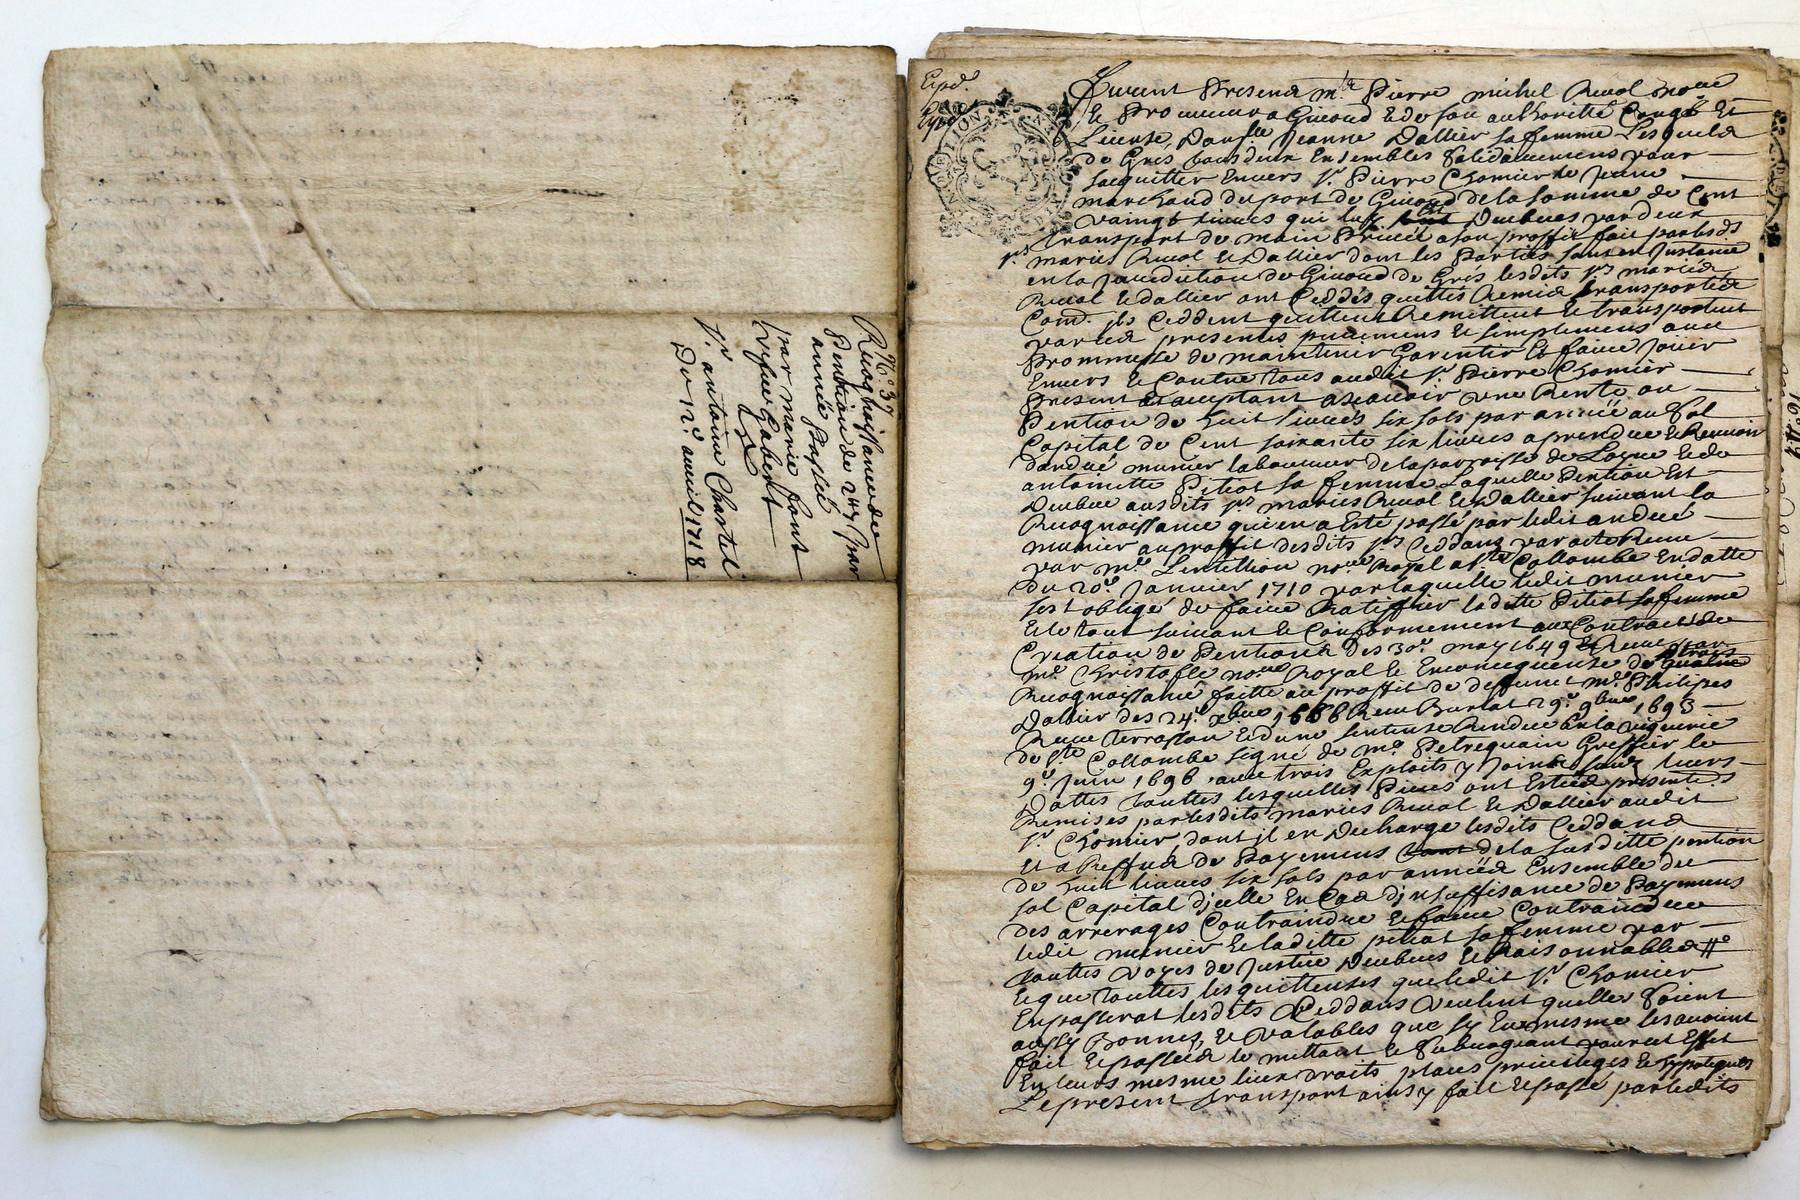 N.° 37
Recognoissance de
Pention de 24# par
année Passée
par marie font
vefue Gabert
S.r antoine Chastel
Du 12.e auril 1718
Exp.é
Furent Presens m.re Pierre michel Reual no.re
Et Procureur a Giuord Et de son authoritté Congé Et
License, Dam.lle Jeanne Dallier sa femme Lesquels
de Gres tous deux Ensembles Solidairement pour
sacquitter Enuers S.r Pierre Chomier le Jeune
marchand du port de Giuord de la somme de Cent
Vaingt liures qui luy est Deubues par deux
transport de main Priuée a son proffit fait par lesds
s.rs mariés Reual Et Dallier dont les Parties sont en Instance
en la Jurediction de Giuord de Grés lesdits s.rs mariés
Reual Et Dallier ont Ceddés quittés Remis transportés
Com.e jls Ceddent quittent Remettent Et transportent
par ces presentes purement Et simplement auec
Prommesse de maintenir Garentir Et faire Jouir
Enuers Et Contre tous audit S.r Pierre Chomier
Present Et acceptant ascauoir vne Rente ou
Pention de huit liures six sols par année au Sol
Capital de Cent soixante six liures a prendre Et Receuoir
dandré munier laboureur de la parroisse de Loyre Et de
antoinette Pitiot sa femme Laquelle Pention Est
Deubue ausdits s.rs mariés Reual Et Dallier suiuant la
Recognoissance qui en a Esté passé par ledit andré
munier au proffit desdits s.rs Ceddans par acte Receu
par m.re Lentillion no.re Royal a s.te Collombe En datte
du 20.e Januier 1710 par laquelle ledit munier
sest obligé de faire Ratiffier laditte Pitiot sa femme
Et le tout suiuant Et Conformement aux Contract de
Creation de Pentions des 30.e may 1649 Receu par
m.e Christofle no.re Royal Et En consequense de trois
Recognoissance faitte au proffit de deffunct m.re Philipes
Dallier des 24.e xbre 1686 Receu Burlat 29.e 9bre 1693
Receu terrasson Et dune sentense Rendue En la viguerie
de s.te Collombe signé de m.e Petrequain Greffier le
9.e Juin 1696 auec trois Exploits y Joints sous leurs
Dattes touttes lesquelles Pieces ont Estées presentem.t
Remises par lesdits mariés Reual Et Dallier audit
S.r Chomier dont jl en Decharge lesdits Ceddans
Et a Reffus de Payement de la susditte pention
de huit liures six sols par années Ensemble du
sol Capital djcelle En Cas djnsuffisance de Payement
des arrerages Contraindre Et faire Contraindre
ledit munier Et laditte pitiot sa femme par
touttes voyes de Justice Deubues Et Raisonnables
Et que touttes les quittenses que ledit S.r Chomier
En passerat lesdits Ceddans veulent quelles Soient
aussy Bonnes, Et valables que sy Eux mesme les auoient
fait Et passées le mettant Et Subrogeant pour cet Effet
En leurs mesme lieux droits places priuileges Et hypoteques
Le present transport ainsy fait Et passé par lesdits